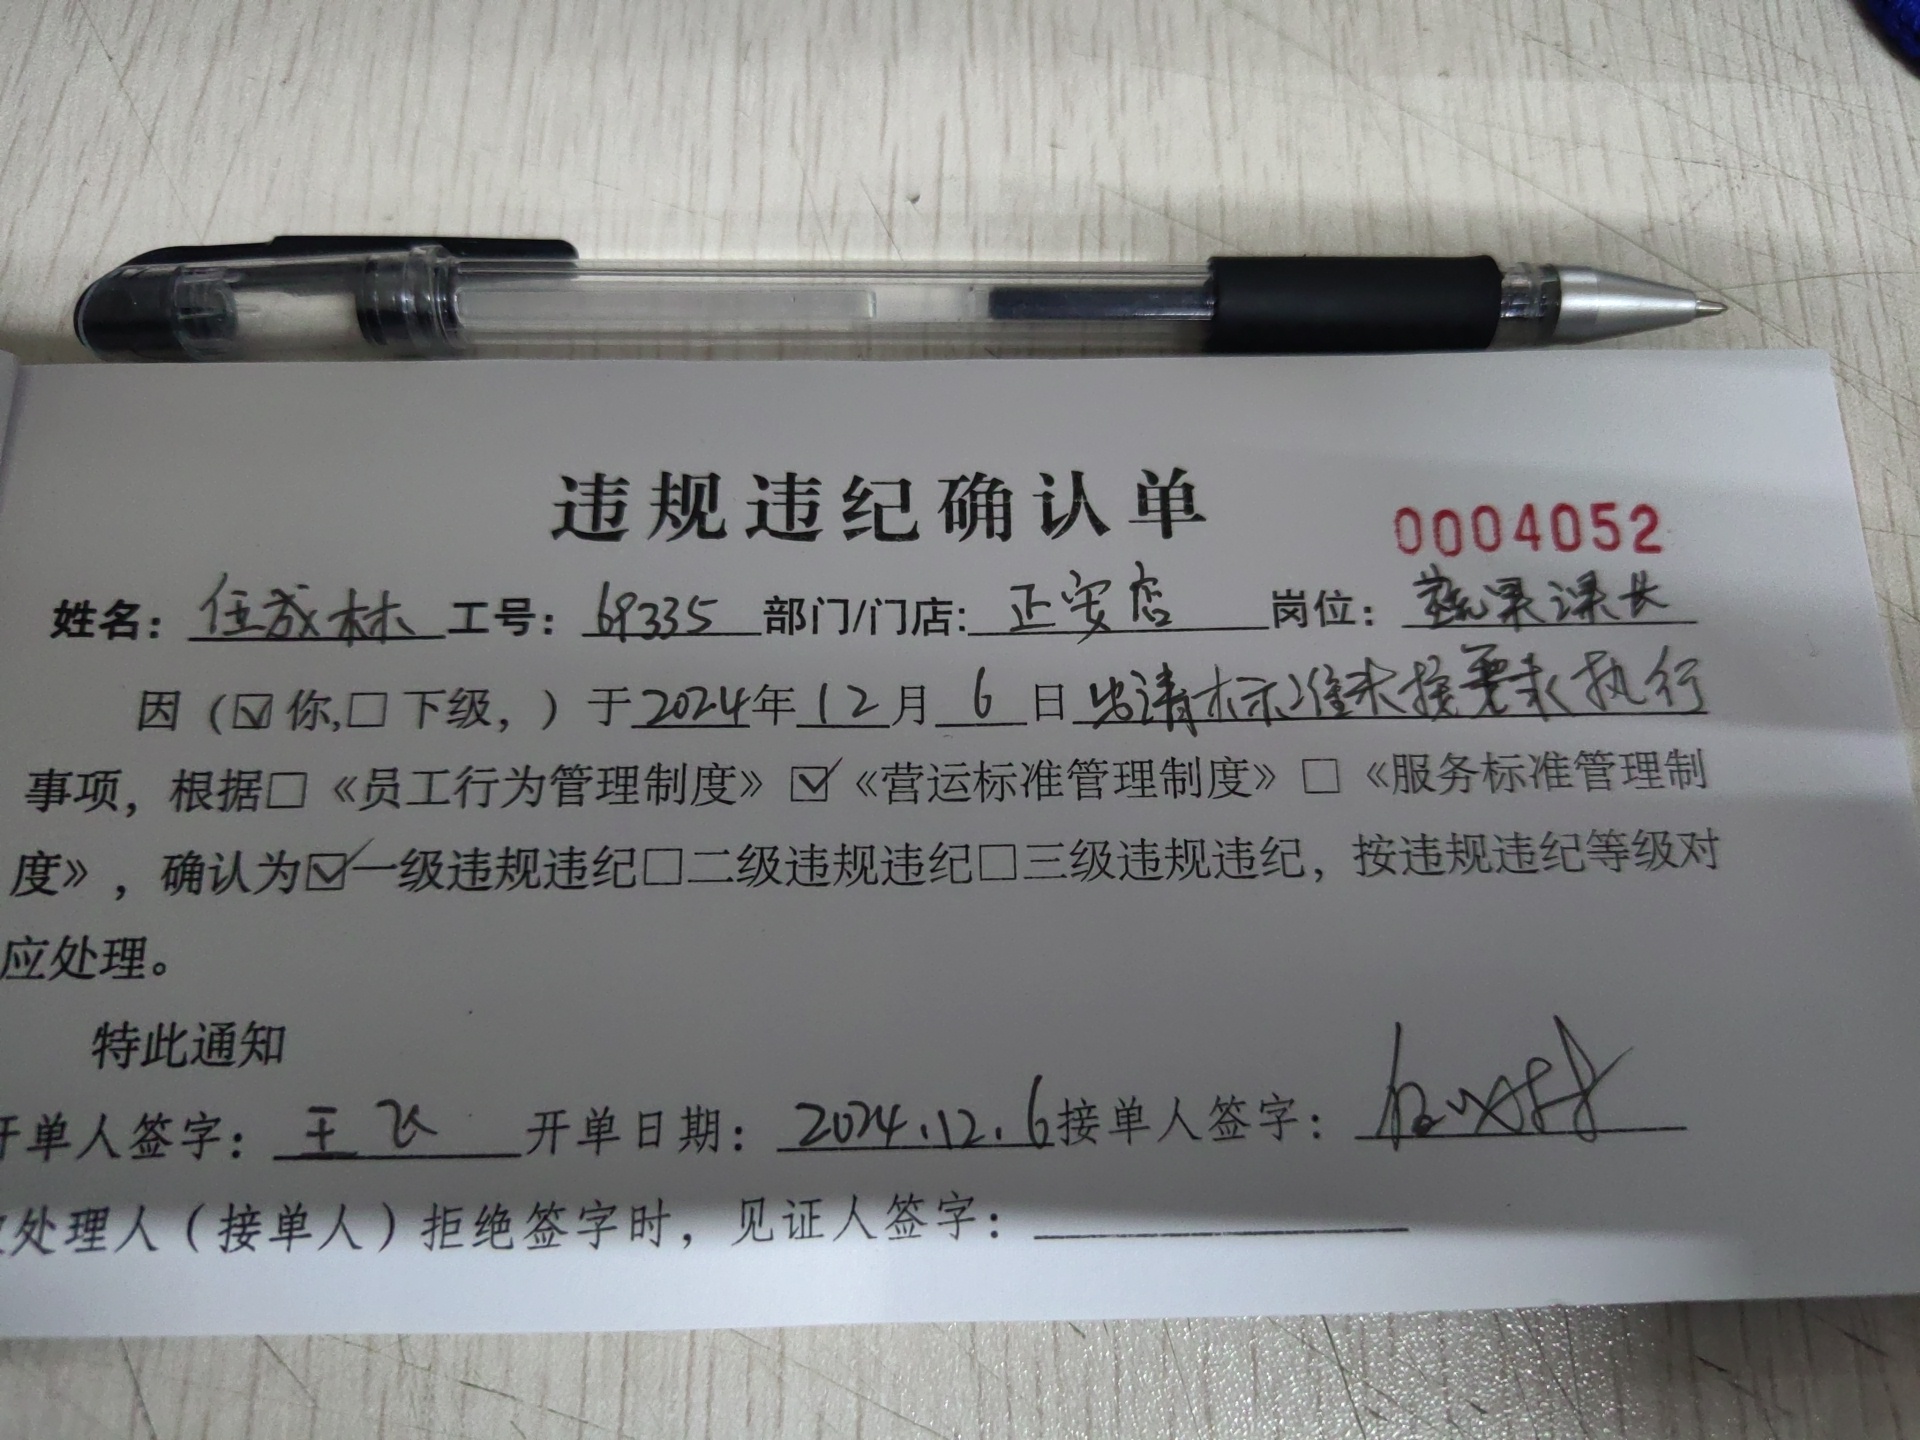 违规违纪确认单 0004052
姓名：任成林 工号：69335 部门/门店：正安店 岗位：蔬果课长
因（☑你,☐下级，）于2024年12月6日出清标准未按要求执行
事项，根据☐《员工行为管理制度》☑《营运标准管理制度》☐《服务标准管理制
度》，确认为☑一级违规违纪☐二级违规违纪☐三级违规违纪，按违规违纪等级对
应处理。
特此通知
开单人签字：王飞 开单日期：2024.12.6 接单人签字：
处理人（接单人）拒绝签字时，见证人签字：